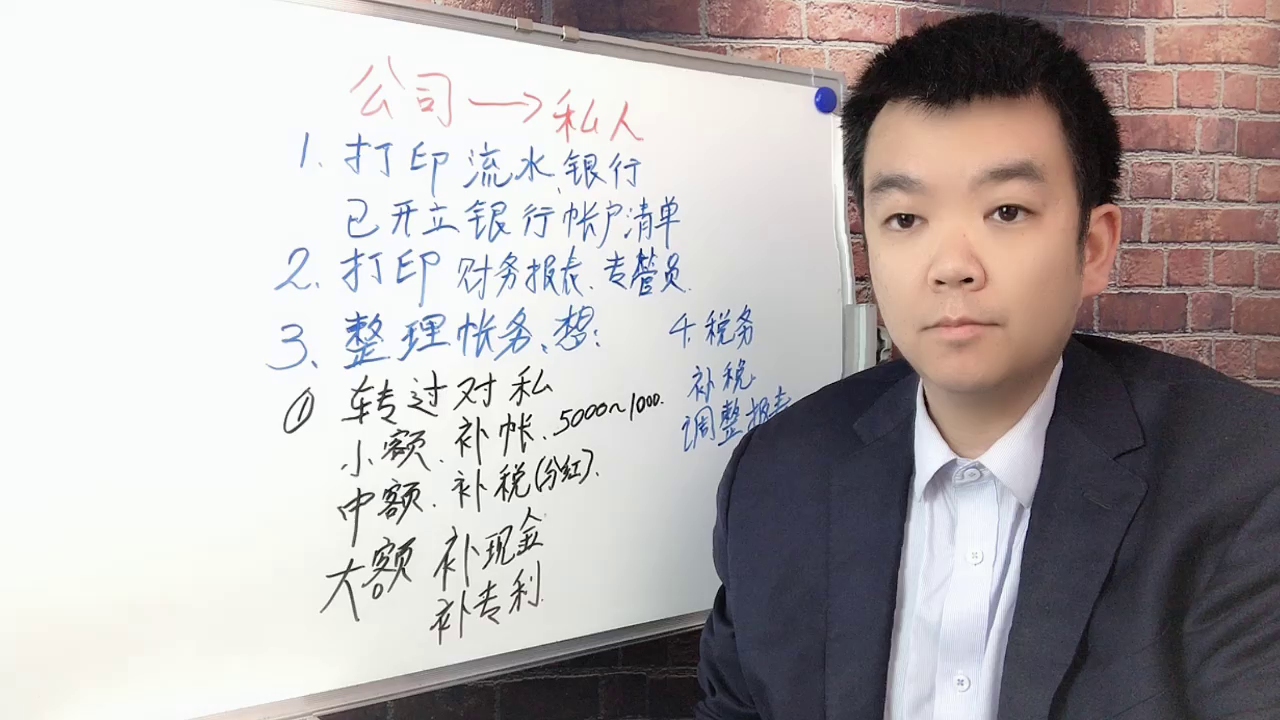 公司→私人
1. 打印流水、银行
已开立银行帐户清单
2. 打印财务报表、专管员
3、整理帐务、想:
① 转过对私
小额、补帐、5000~1000.
中额、补税(分红)、
大额 补现金
补专利
4、税务
补税、
调整报表